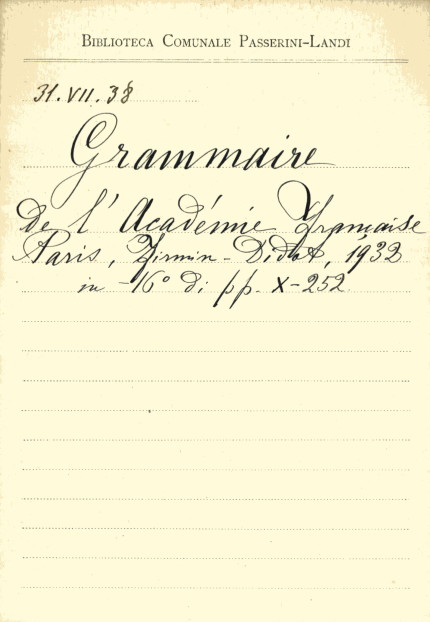 BIBLIOTECA COMUNALE PASSERINI-LANDI
31.VII.38
Grammaire
de l'Académie Française
Paris, Firmin-Didot, 1932
in -16° di pp. X-252